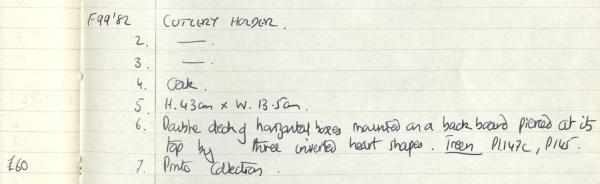 F99'82 CUTLERY HOLDER.
2. —
3. —
4. Oak.
5. H. 43cm x W. 13.5cm.
6. Double deck of horizontal boxes mounted on a back board pierced at its
top by three inverted heart shapes. Treen Pl.147c, P145.
£60 7. Pinto Collection.